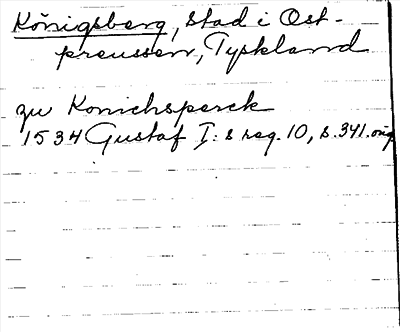 Königsberg, Stad i Ost-
preussen, Tyskland
zu Konichsperck
1534 Gustaf I:s reg. 10, s. 341. orig